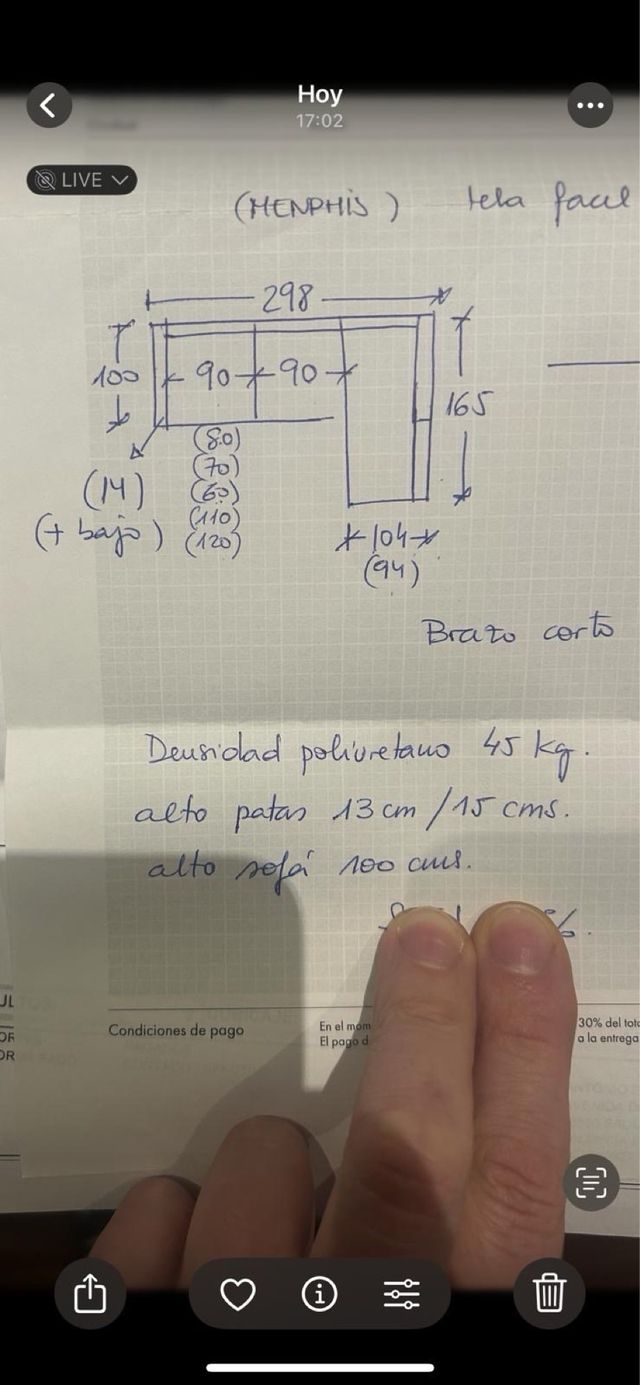 Hoy
17:02
LIVE
(MENPHIS) tela facil
298
100
90 90
165
(80)
(70)
(14)
(60)
(+ bajo)
(110)
(120)
104
(94)
Brazo corto
Densidad poliuretano 45 kg.
alto patas 13 cm / 15 cms.
alto sofá 100 cms.
%.
UL
OR
OR
Condiciones de pago
En el mom
El pago d
30% del tot
a la entrega